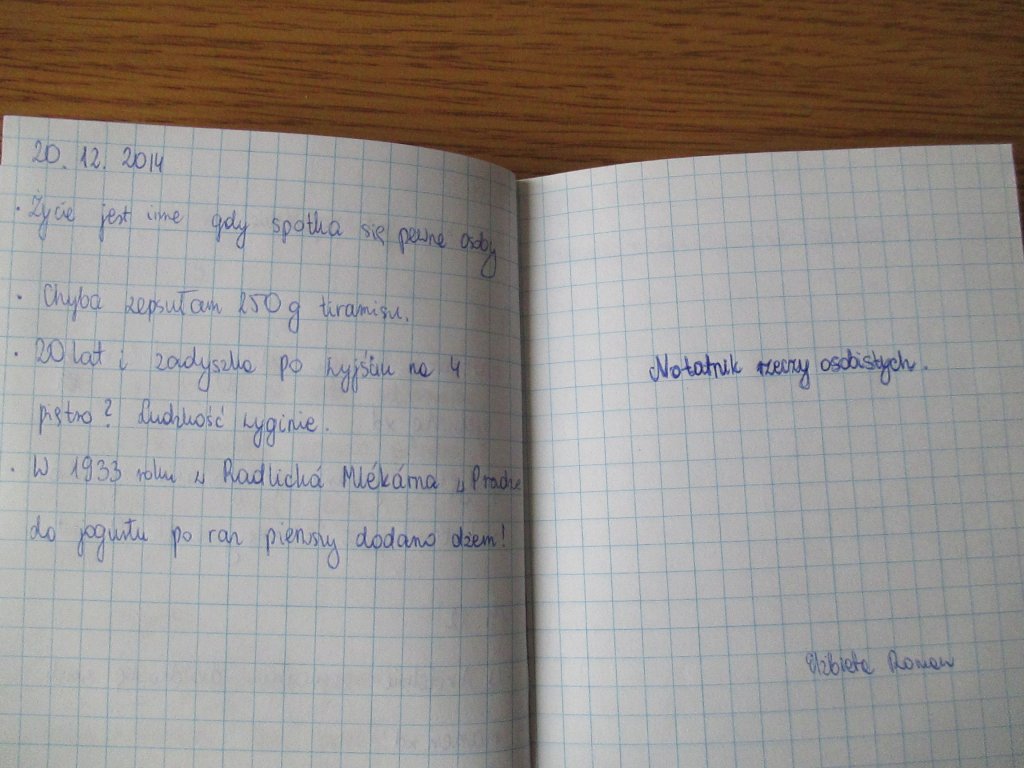 20. 12. 2014
· Życie jest inne gdy spotka się pewne osoby
· Chyba zepsułam 250 g tiramisu.
· 20 lat i zadyszka po wyjściu na 4
piętro? Ludzkość wyginie.
· W 1933 roku w Radlická Mlékárna w Pradze
do jogurtu po raz pierwszy dodano dżem!
Notatnik rzeczy osobistych.
Elżbieta Roman